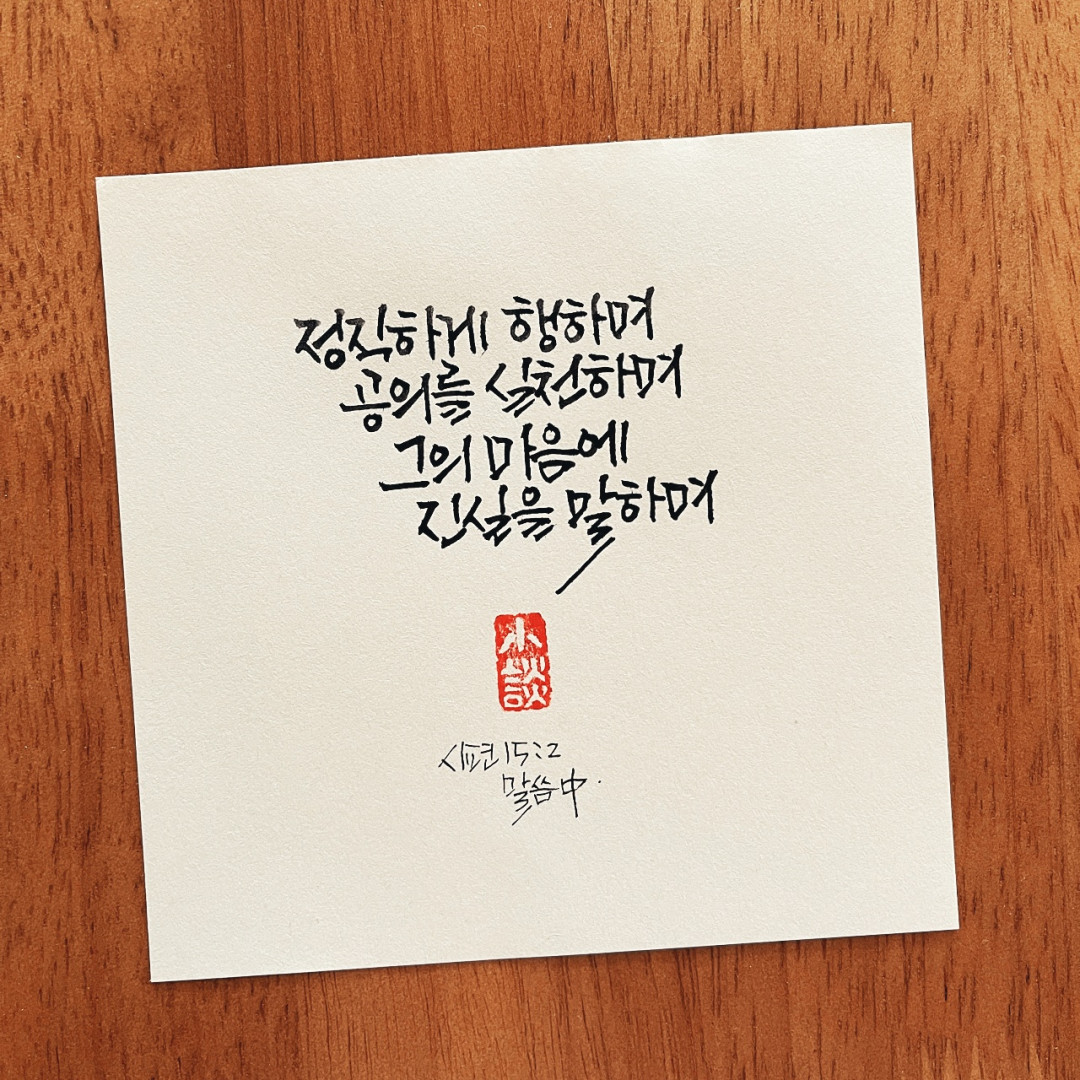 정직하게 행하며
공의를 실천하며
그의 마음에
진실을 말하며
小談
시편 15:2
말씀中.